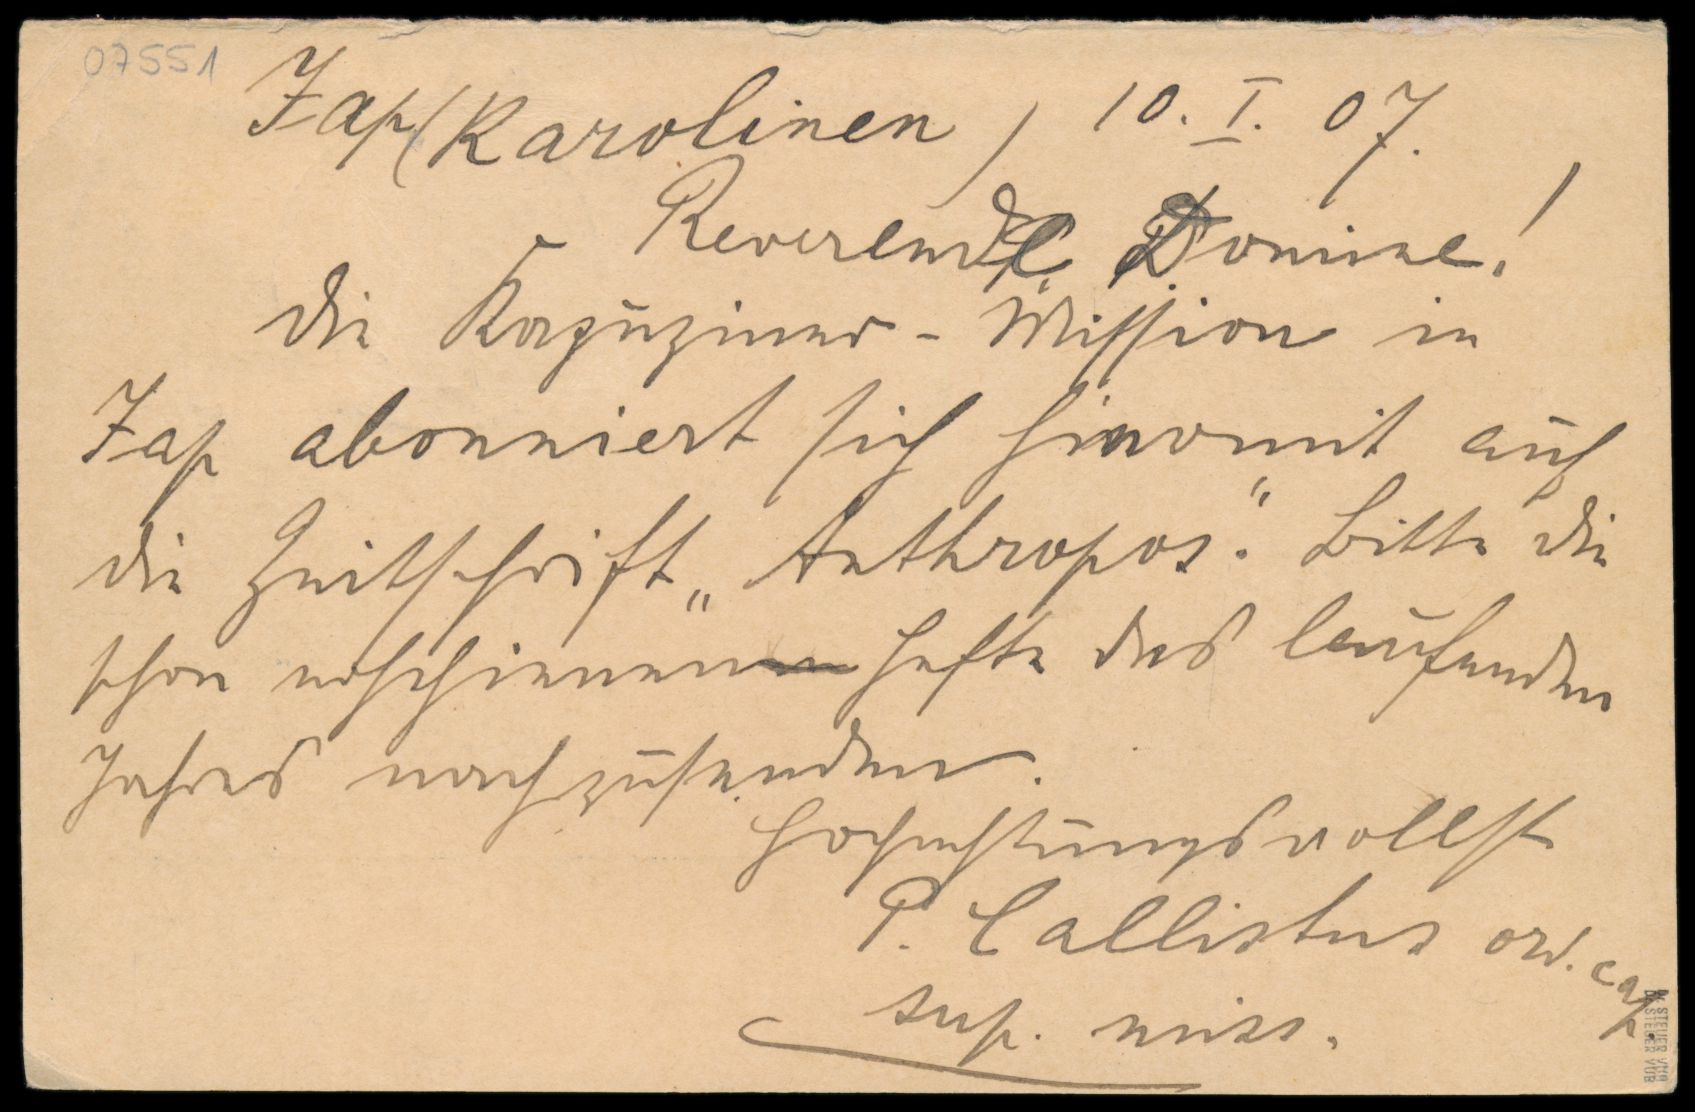 07551
Jap (Karolinen) 10. I. 07.
Reverende Domine!
Die Kapuziner-Mission in
Jap abonniert sich hiermit auf
die Zeitschrift „Anthropos". Bitte die
schon erschienenen Hefte des laufenden
Jahres nachzusenden.
Hochachtungsvollst
P. Callistus ord. cap.
sup. miss.
STEUER VÜB
STEUER VÜB